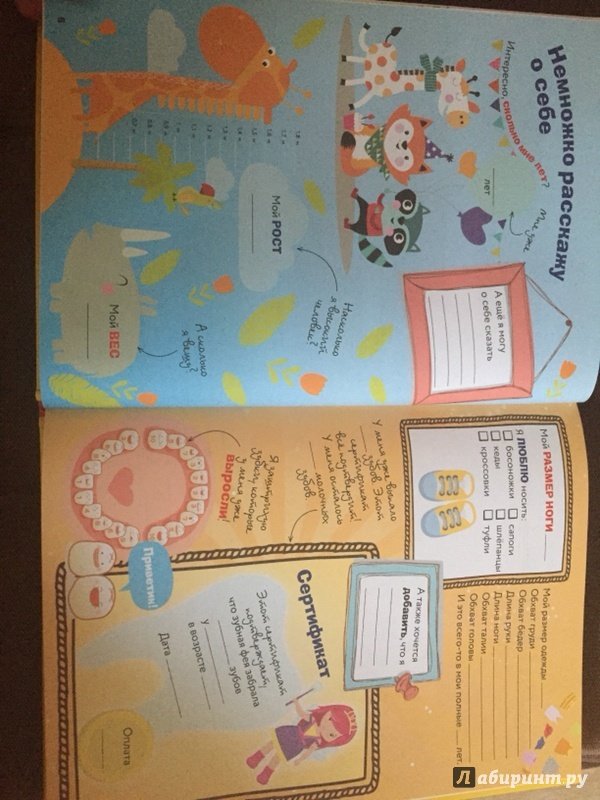 Немножко расскажу
о себе
Интересно, сколько мне лет?
Мне уже
лет
А ещё я могу
о себе сказать
1,8 м
1,7 м
1,6 м
1,5 м
1,4 м
1,3 м
1,2 м
1,1 м
1 м
0,9 м
0,8 м
0,7 м
Мой РОСТ
Насколько
я высокий
человек?
Мой ВЕС
А сколько
я вешу?
6
Мой РАЗМЕР НОГИ
Я ЛЮБЛЮ носить:
босоножки
кеды
кроссовки
сапоги
шлёпанцы
туфли
Мой размер одежды
Обхват груди
Обхват бедер
Длина руки
Длина ноги
Обхват талии
Обхват головы
И это всего-то в мои полные лет.
У меня уже выпало
зубов. Этот
сертификат
все подтвердит!
У меня осталось
молочных
зубов.
А также хочется
добавить, что я
Я заштрихую
зубы, которые
у меня уже
ВЫРОСЛИ!
Приветик!
Сертификат
Этот сертификат
подтверждает,
что зубная фея забрала
зубов
У
в возрасте
Дата
Оплата
Лабиринт.ру